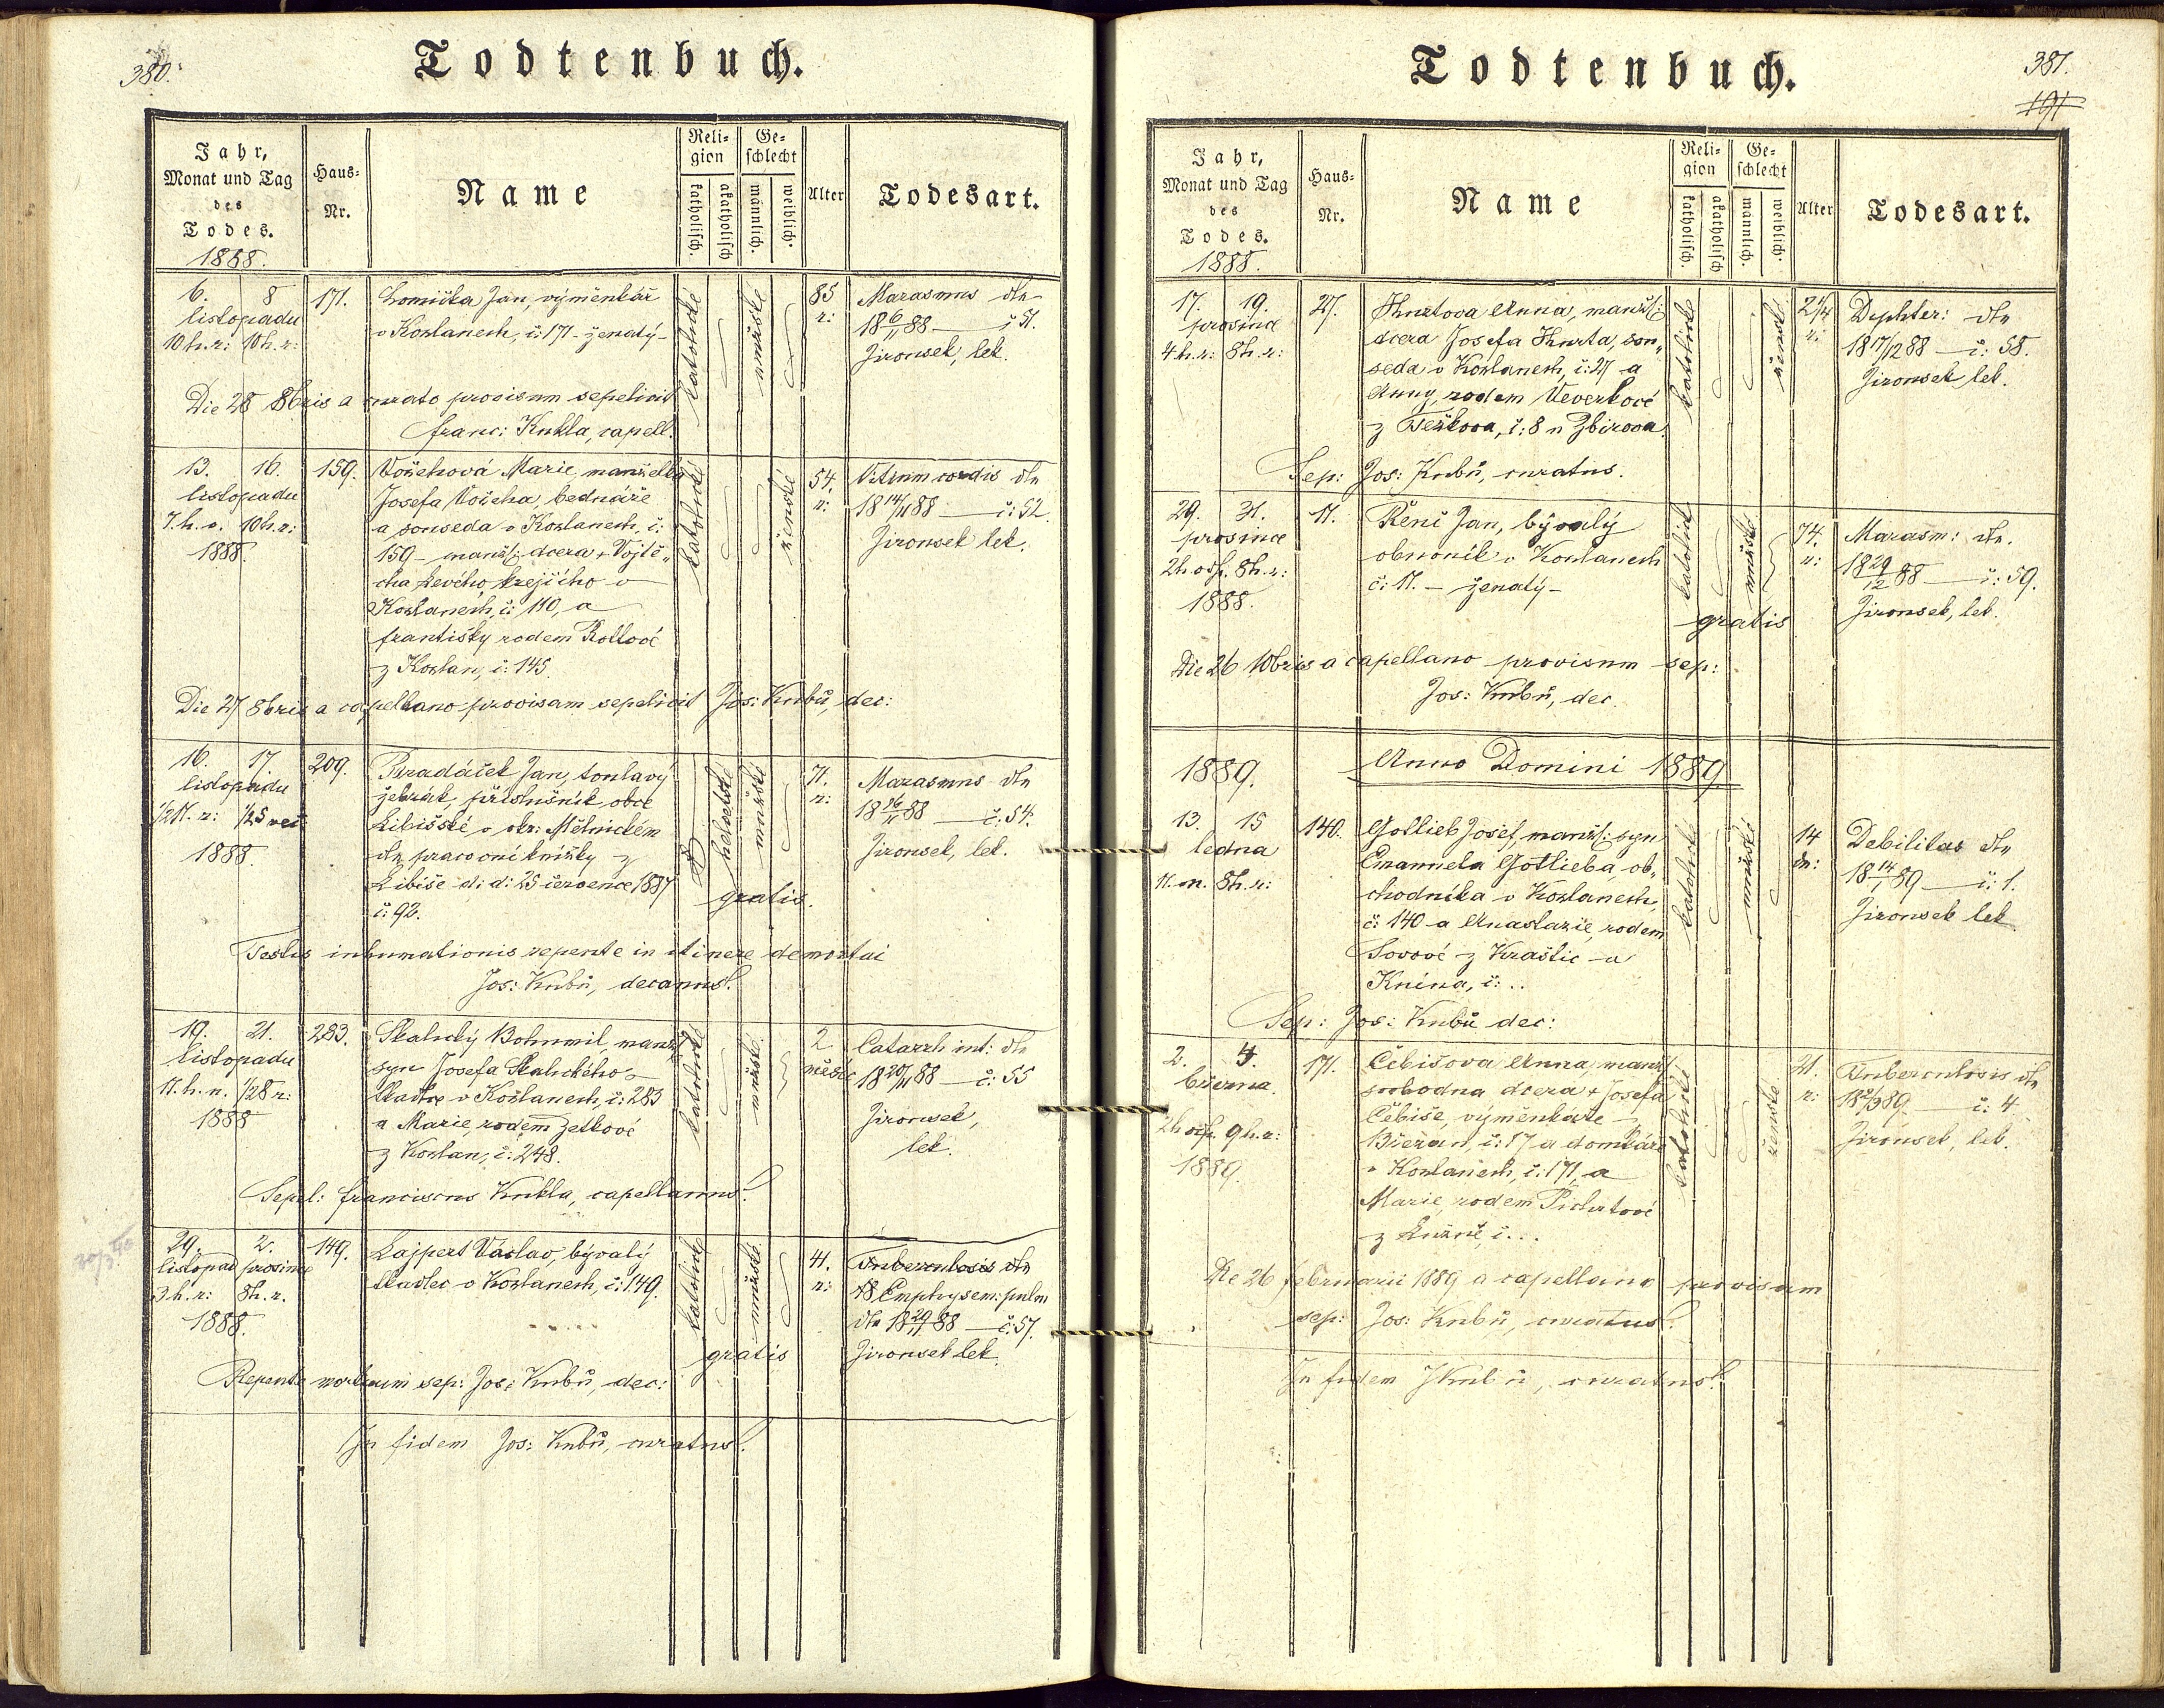 380.
Todtenbuch.
Jahr,
Monat und Tag
des
Todes.
1888.
Haus-
Nr.
Name
Reli-
gion
katholisch.
akatholisch
Ge-
schlecht
männlich.
weiblich.
Alter
Todesart.
6. 8
listopadu
10 h. r: 10 h. r:
171.
Lomička Jan, výměnkář
v Kožlanech, č: 171 - ženatý -
katolické
mužské
85
r:
Marasmus dle
18 6/11 88 — č 51.
Jirousek, lek.
Die 28 8bris a curato provisum sepelivit
Franc: Kukla, capell.
13. 16.
listopadu
7. h. o. 10 h. r:
1888.
159.
Vožehová Marie, manželka
Josefa Vožeha, bednáře
a souseda v Kožlanech, č:
159 - manž: dcera + Vojtě„
cha Levého, krejčího v
Kožlanech, č: 110, a
Františky rodem Rollové
z Kožlan, č: 145.
katolické
ženské
54.
r:
Vitium cordis dle
18 14/11 88 — č: 52.
Jirousek lek.
Die 27 8bris a capellano provisam sepelivit Jos: Kubů, dec:
16. 17
listopadu
1/2 11. r: 1/2 5 več
1888.
209.
Bradáček Jan, toulavý
žebrák, příslušník obce
Libišské v okr: Mělnickém
dle pracovní knížky z
Libiše d: d: 25 července 1887
č: 92.
helvetské
mužské
gratis.
71.
r:
Marasmus dle
18 16/11 88 — č: 54.
Jirousek, lek.
Testis inhumationis repente in itinere demortui
Jos: Kubů, decanus.
19. 21.
listopadu
11. h. n. 1/2 8 r:
1888
283.
Skalický Bohumil, manž:
syn Josefa Skalického
tkadlce v Kožlanech, č: 283
a Marie, rodem Zelkové
z Kožlan, č: 248.
katolické
mužské
2
měsíc
Catarrh int: dle
18 20/11 88 — č: 55
Jirousek,
lek.
Sepel: Franciscus Kukla, capellanus.
29. 2.
listopad prosince
3. h. r: 8 h. r.
1888.
149.
Lajpert Václav, bývalý
tkadlec v Kožlanech, č: 149.
katolické
mužské
gratis
41.
r:
Tuberculosis dle
Emphysem: pulm
dle 18 29/11 88 — č: 57.
Jirousek lek.
Repente mortuum sep: Jos: Kubů, dec:
In fidem Jos: Kubů, curatus.
Todtenbuch.
381.
191
Jahr,
Monat und Tag
des
Todes.
1888.
Haus-
Nr.
Name
Reli-
gion
katholisch.
akatholisch
Ge-
schlecht
männlich.
weiblich.
Alter
Todesart.
17. 19.
prosince
4 h. r: 8 h. r:
27.
Anna, manž:
dcera Josefa Kurta, sou„
seda v Kožlanech, č: 27 a
Anny, rodem Veverkové
z Těškova, č: 8 u Zbirova.
katolické
ženské
2 1/4
r:
Diphter: dle
18 17/12 88 — č: 58.
Jirousek lek.
Sep: Jos: Kubů, curatus.
29. 31.
prosince
2 h. odp. 8 h. r:
1888.
11.
Řeně Jan, bývalý
obuvník v Kožlanech
č: 11. - ženatý -
katolické
mužské
gratis
74.
r:
Marasm: dle.
18 29/12 88 — č: 59.
Jirousek, lek.
Die 26 10bris a capellano provisum sep:
Jos: Kubů, dec.
1889. Anno Domini 1889
13. 15
ledna
11. n. 8 h. r:
140.
Gotlieb Josef, manž: syn
Emanuela Gotlieba, ob„
chodníka v Kožlanech,
č: 140 a Anastazie, rodem
Sovové z Kraštic u
Knína, č: ..
katolické
mužské
14
dn:
Debilitas dle
18 14/1 89 — č: 1.
Jirousek lek
Sep: Jos: Kubů dec:
2. 4.
března
2 h odp. 9 h. r:
1889.
171.
Čebišova Anna, manž:
svobodna dcera + Josefa
Čebiše, výměnkáře z
Břežan, č: 17 a domkáře
v Kožlanech, č: 171, a
Marie, rodem Pichrtové
z Lužné, č: ..
katolické
ženské
21.
r:
Tuberculosis dle
18 2/3 89 — č: 4
Jirousek, lek.
Die 26 februarii 1889 a capellano provisam
sep: Jos: Kubů, curatus.
In fidem J Kubů, curatus.